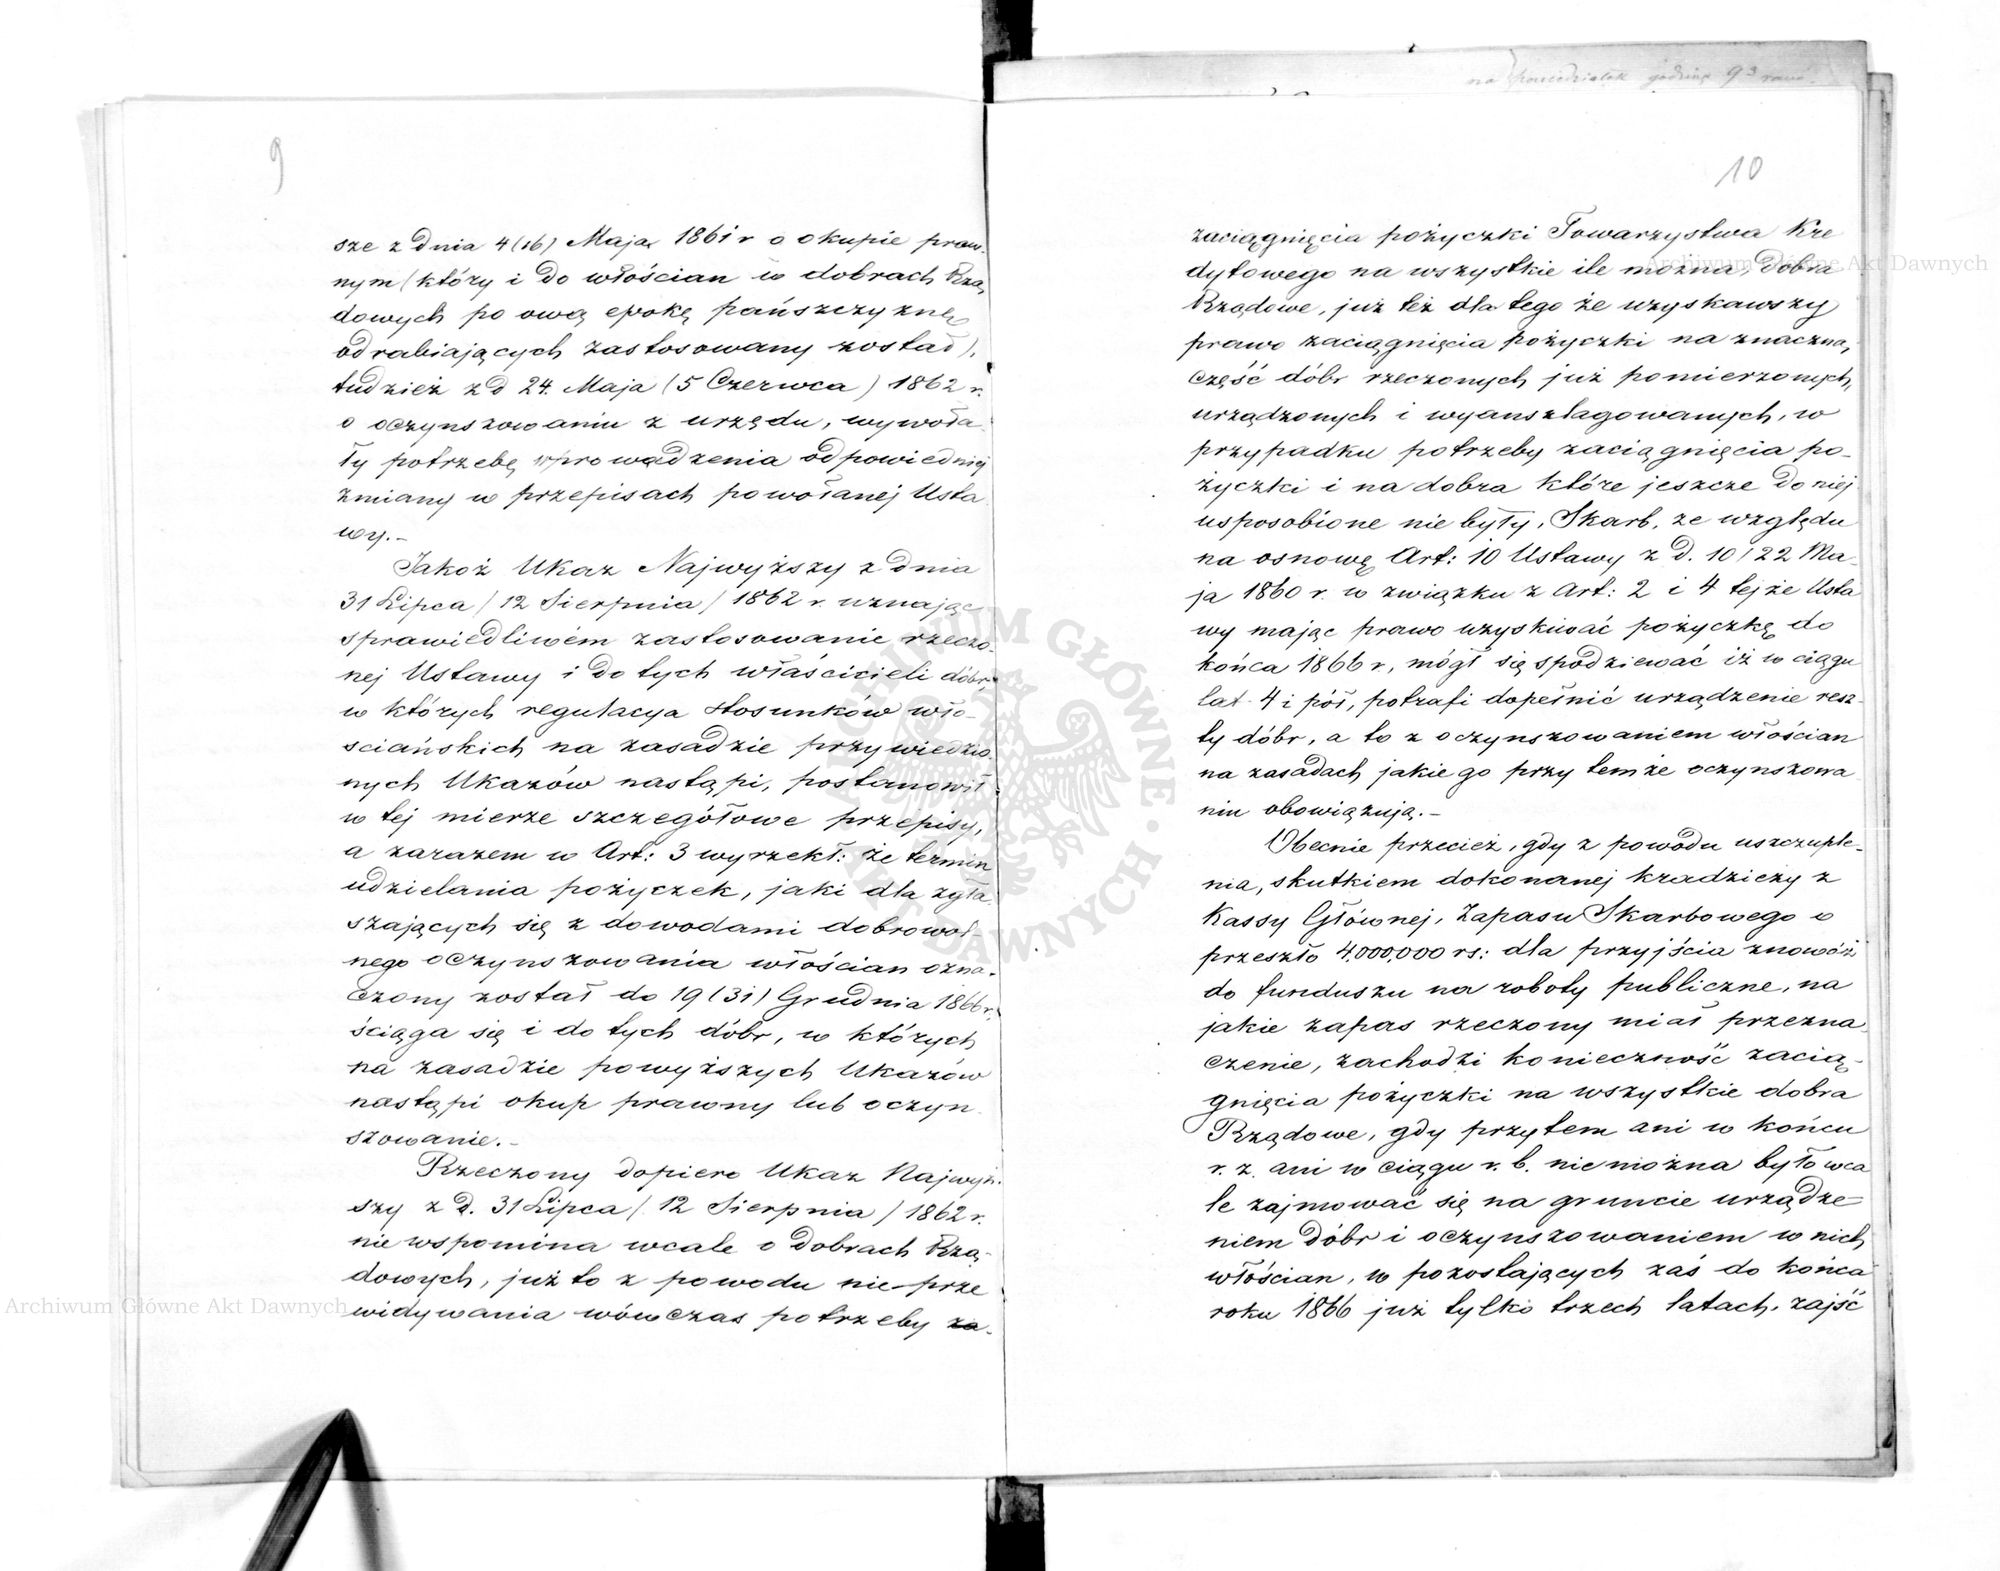 9
sze z dnia 4 (16) Maja 1861 r o okupie praw-
nym (który i do włościan w dobrach Rzą
dowych po ową epokę pańszczyznę
odrabiających zastosowany został),
tudzież z d 24. Maja (5 Czerwca) 1862 r.
o oczynszowaniu z urzędu, wywoła-
ły potrzebę wprowadzenia odpowiedniej
zmiany w przepisach powołanej Usta
wy.-
Jakoż Ukaz Najwyższy z dnia
31 Lipca / 12 Sierpnia / 1862 r. uznając
sprawiedliwém zastosowanie rzeczo-
nej Ustawy i do tych właścicieli dóbr,
w których regulacya stosunków wło-
sciańskich na zasadzie przywiedzio-
nych Ukazów nastąpi, postanowił
w tej mierze szczegółowe przepisy,
a zarazem w Art: 3 wyrzekł: że termin
udzielania pożyczek, jaki dla zgła
szających się z dowodami dobrowol-
nego oczynszowania włościan ozna-
czony został do 19 (31) Grudnia 1866 r.
ściąga się i do tych dóbr, w których
na zasadzie powyższych Ukazów
nastąpi okup prawny lub oczyn
szowanie.-
Rzeczony dopiero Ukaz Najwyż-
szy z d. 31 Lipca / 12 Sierpnia / 1862 r.
nie wspomina wcale o dobrach Rzą-
dowych, już to z powodu nie-prze
widywania wówczas potrzeby za-
na poniedziałek godzinę 9 3 rano
10
zaciągnięcia pożyczki Towarzystwa Kre
dytowego na wszystkie ile można, dobra
Rządowe, już też dla tego że uzyskawszy
prawo zaciągnięcia pożyczki na znaczną,
część dóbr rzeczonych już pomierzonych,
urządzonych i wyanszlagowanych, w
przypadku potrzeby zaciągnięcia po-
życzki i na dobra które jeszcze do niej
usposobione nie były, Skarb, ze względu
na osnowę Art: 10 Ustawy z d. 10 / 22 Ma-
ja 1860 r. w związku z Art: 2 i 4 tejże Usta
wy mając prawo uzyskiwać pożyczkę do
końca 1866 r, mógł się spodziewać iż w ciągu
lat 4 i pół, potrafi dopełnić urządzenie resz-
ty dóbr, a to z oczynszowaniem włościan
na zasadach jakie go przy temże oczynszowa
niu obowiązują.-
Obecnie przecież, gdy z powodu uszczuple-
nia, skutkiem dokonanej kradzieży z
Kassy Głównej, Zapasu Skarbowego o
przeszło 4.000,000 rs: dla przyjścia znowóż
do funduszu na roboty publiczne, na
jakie zapas rzeczony miał przezna-
czenie, zachodzi konieczność zacią-
gnięcia pożyczki na wszystkie dobra
Rządowe, gdy przytem ani w końcu
r. z. ani w ciągu r. b. nie można było wca
le zajmować się na gruncie urządze-
niem dóbr i oczynszowaniem w nich
włościan, w pozostających zaś do końca
roku 1866 już tylko trzech latach, zajść